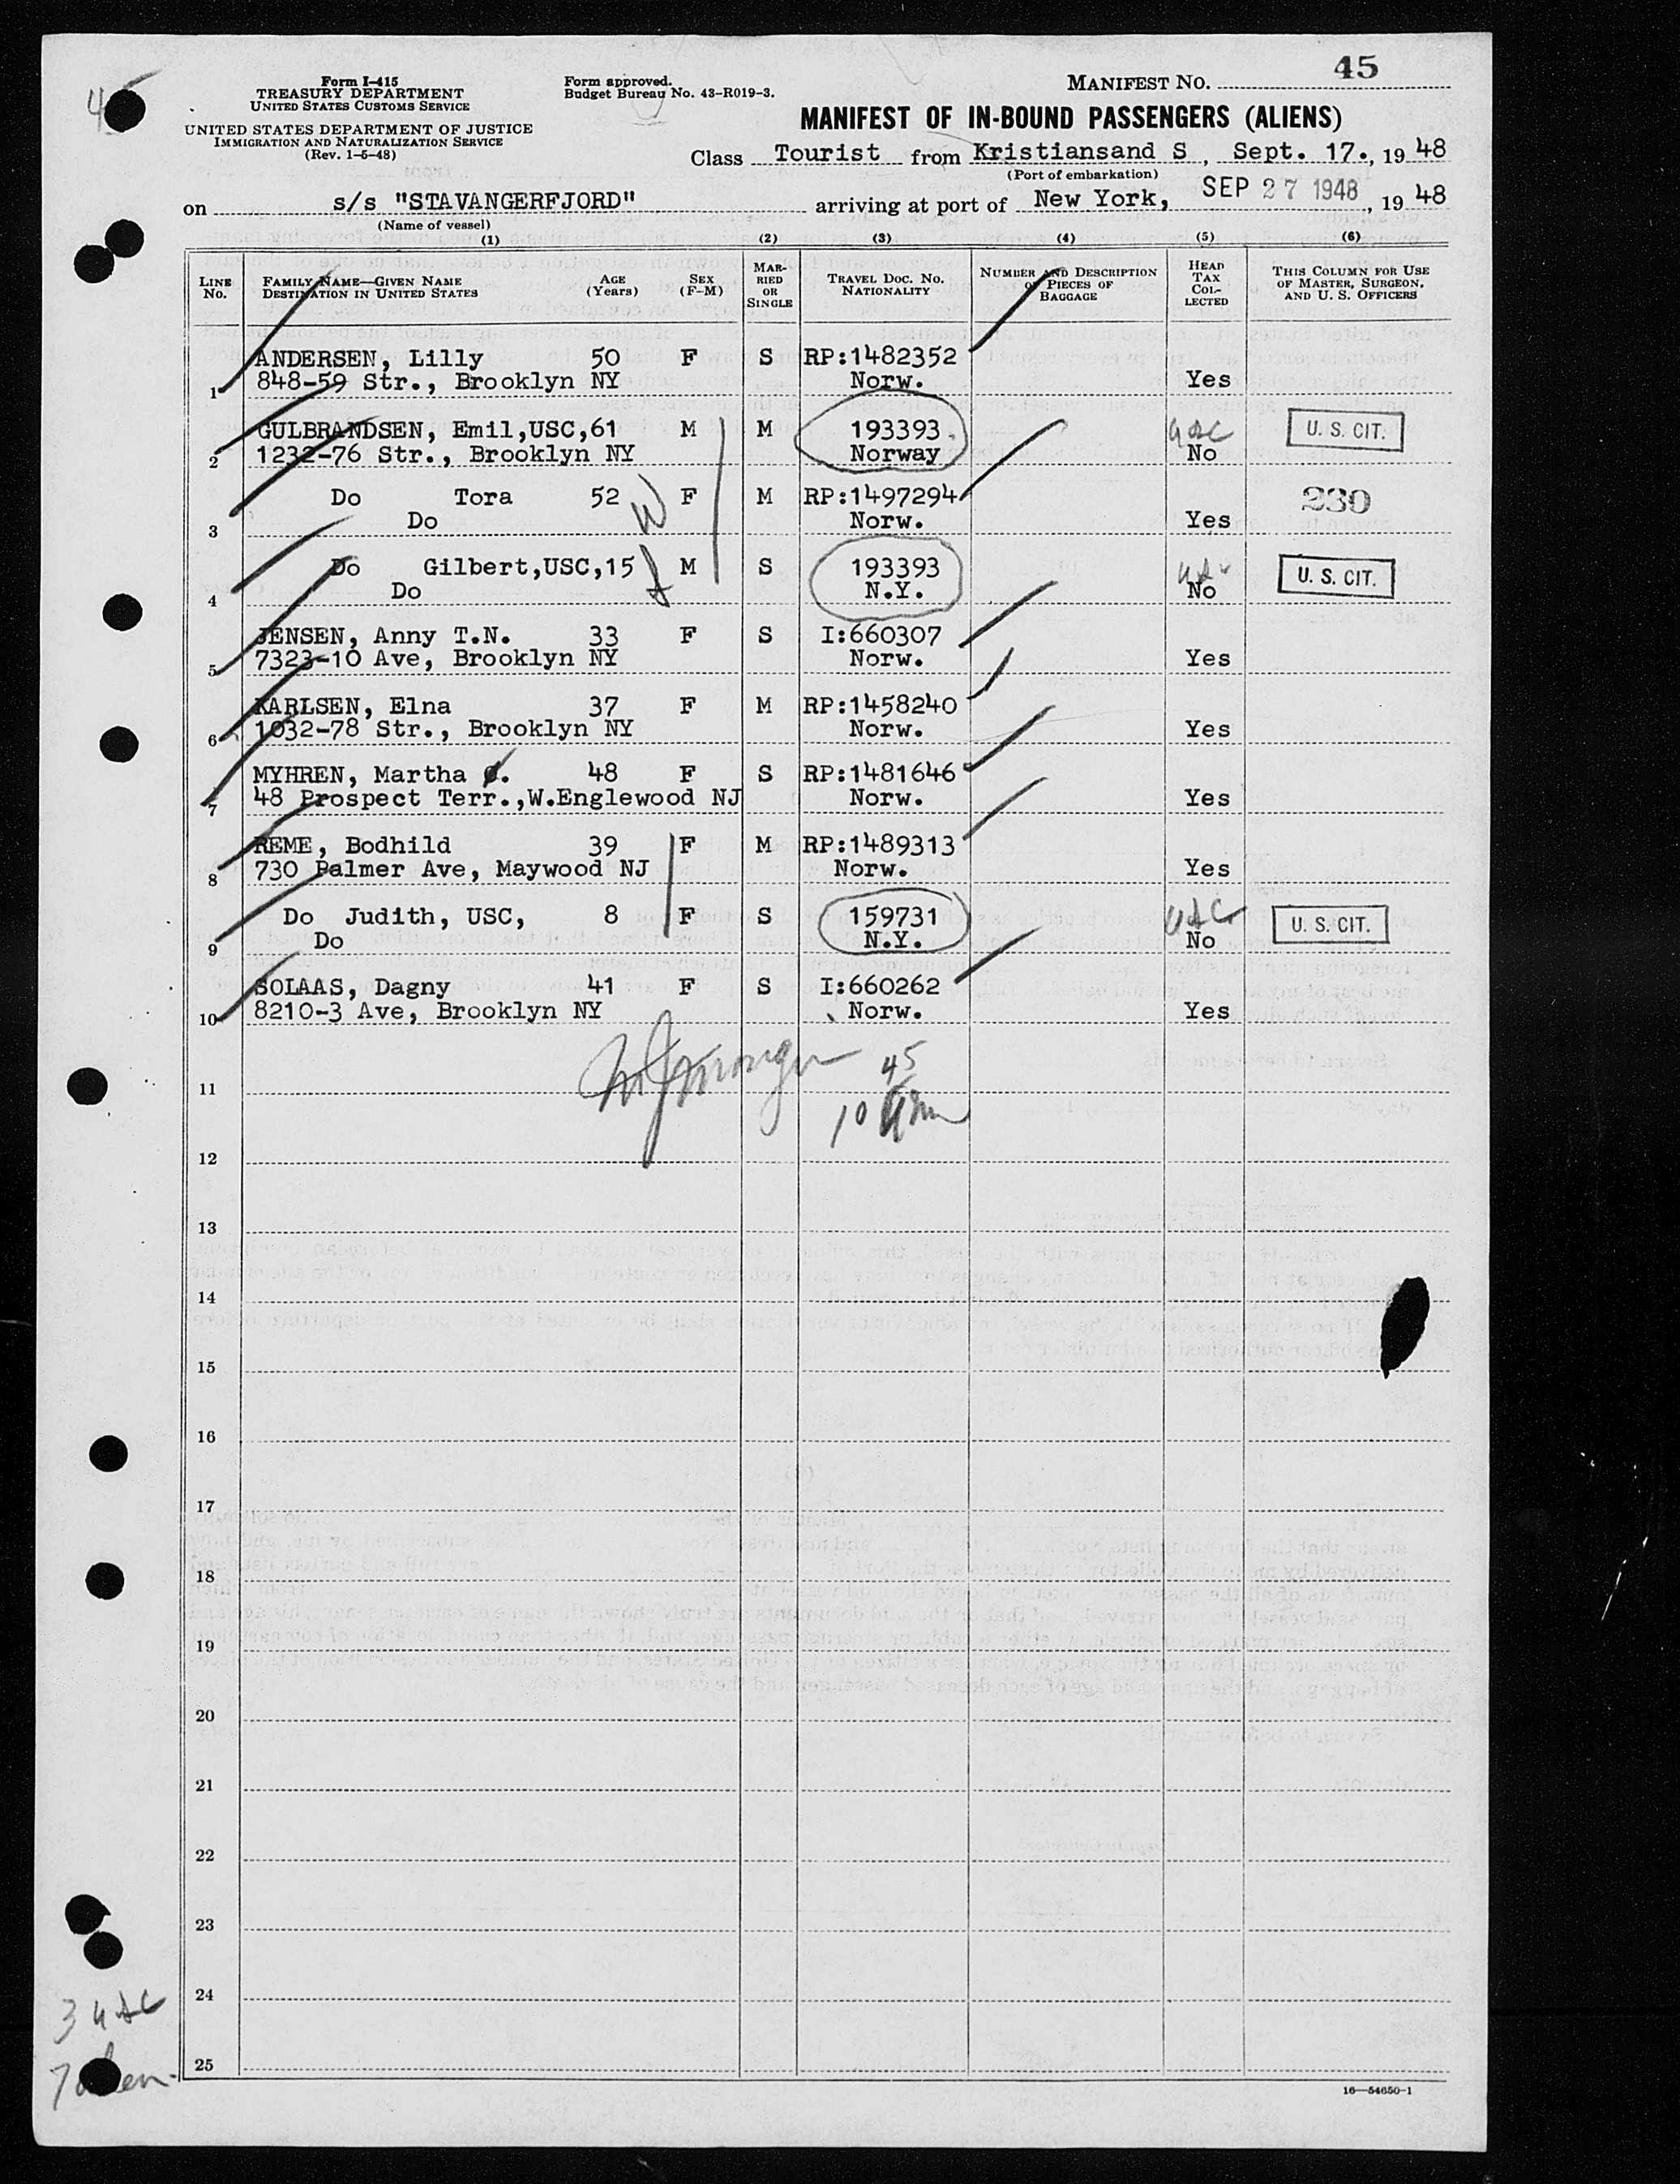 45
Form I-415
TREASURY DEPARTMENT
UNITED STATES CUSTOMS SERVICE
UNITED STATES DEPARTMENT OF JUSTICE
IMMIGRATION AND NATURALIZATION SERVICE
(Rev. 1-5-48)
Form approved.
Budget Bureau No. 43-R019-3.
MANIFEST NO. 45
MANIFEST OF IN-BOUND PASSENGERS (ALIENS)
Class Tourist from Kristiansand S, Sept. 17., 19 48
(Port of embarkation)
on s/s "STAVANGERFJORD" arriving at port of New York, SEP 27 1948, 19 48
(Name of vessel)
(1) (2) (3) (4) (5) (6)
LINE No. FAMILY NAME—GIVEN NAME DESTINATION IN UNITED STATES AGE (Years) SEX (F-M) MARRIED OR SINGLE TRAVEL DOC. No. NATIONALITY NUMBER AND DESCRIPTION OF PIECES OF BAGGAGE HEAD TAX COLLECTED THIS COLUMN FOR USE OF MASTER, SURGEON, AND U. S. OFFICERS
ANDERSEN, Lilly 50 F S RP:1482352
1 848-59 Str., Brooklyn NY Norw. Yes
GULBRANDSEN, Emil,USC,61 M M 193393 USC U. S. CIT.
2 1232-76 Str., Brooklyn NY Norway No
Do Tora 52 W F M RP:1497294 230
3 Do Norw. Yes
Do Gilbert,USC,15 M S 193393 U. S. CIT.
4 Do N.Y. No
JENSEN, Anny T.N. 33 F S I:660307
5 7323-10 Ave, Brooklyn NY Norw. Yes
KARLSEN, Elna 37 F M RP:1458240
6 1032-78 Str., Brooklyn NY Norw. Yes
MYHREN, Martha 48 F S RP:1481646
7 48 Prospect Terr.,W.Englewood NJ Norw. Yes
REME, Bodhild 39 F M RP:1489313
8 730 Palmer Ave, Maywood NJ Norw. Yes
Do Judith, USC, 8 F S 159731 USC U. S. CIT.
9 Do N.Y. No
SOLAAS, Dagny 41 F S I:660262
10 8210-3 Ave, Brooklyn NY Norw. Yes
45
11
10
12
13
14
15
16
17
18
19
20
21
22
23
24
3 USC
25
7
16—54650-1